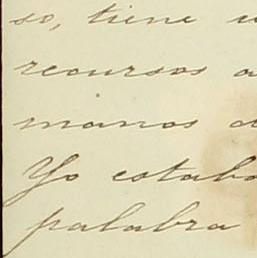 so, tiene
recursos a
manos d
Yo estaba
palabra